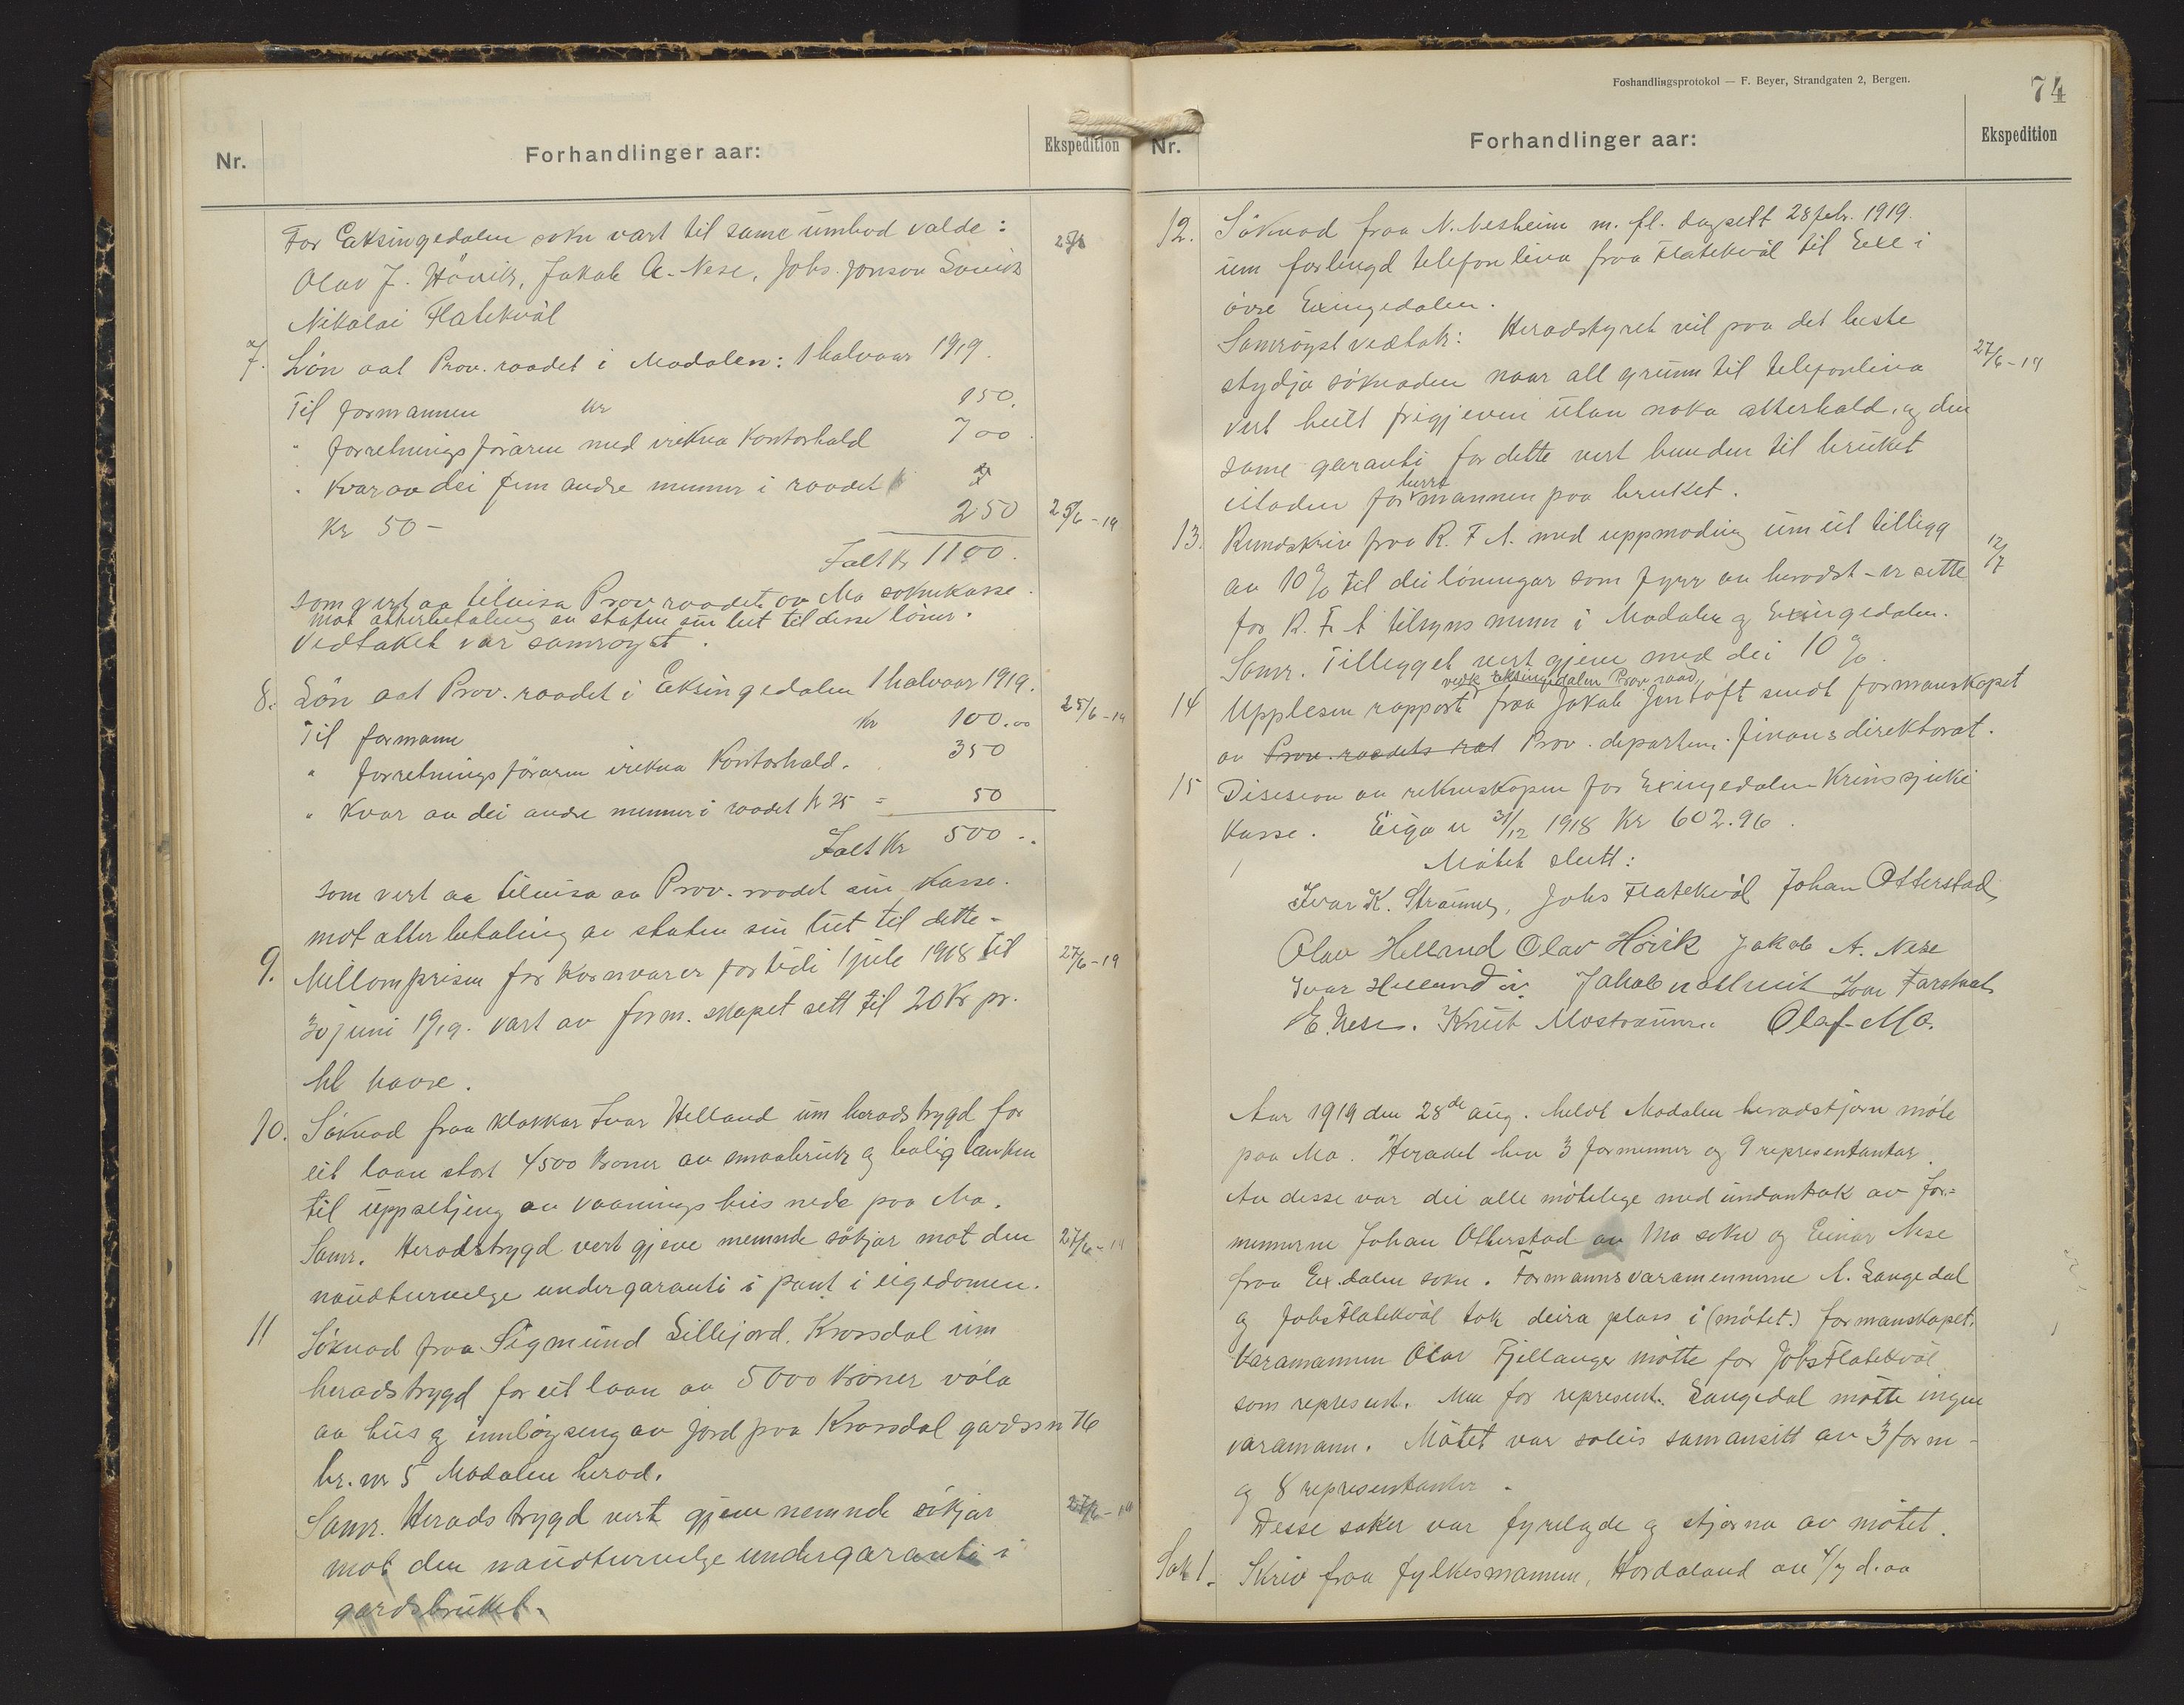 Nr.
Forhandlinger aar:
Ekspedition
For Eaksingedalen sokn vart til same umbod valde:
Olav J. Hövik, Jakob A. Nese, Johs. Jonson
Nikolai Flatekvål
7. Lön aat Prov. raadet i Modalen: 1 halvaar 1919.
Til formannen kr 150.
" forretningsföraren med irekna kontorhald 700
" Kvar av dei fem andre menner i raadet
Kr 50 - 250
25/6-19
Ialt kr 1100.
som vert aa tilvisa Prov raadet av Mo soknekasse.
mot atterbetaling av staten sin lut til desse löner.
Vedtaket var samröystt.
8. Lön aat Prov. raadet i Eaksingedalen 1 halvaar 1919.
25/6-19
Til formann kr 100.00
" forretningsföraren irekna Kontorhald. 350
" Kvar av dei andre menner i raadet kr 25 = 50
Ialt Kr 500 -.
som vert aa tilvisa av Prov. raadet sin kasse.
mot atterbetaling av staten sin lut til dette.
9. Millomprisen for kornvarer for tidi 1 juli 1918 til
27/6-19
30 juni 1919. vart av form. skapet sett til 20 Kr pr.
hl havre.
10. Söknad fraa klokkar Ivar Helland um heradstrygd for
eit laan stort 4500 kroner av smaabruk og boligbanken
til uppsetjing av vaaningshus nede paa Mo.
Samr. Heradstrygd vert gjeve nemnde sökjar mot den
27/6-19
naudturvelge undergaranti i pant i eigedomen.
11 Söknad fraa Sigmund Lillejord. Krossdal um
heradstrygd for eit laan av 5000 kroner
av hus og innlöysing av jord paa Krossdal gardsn 76
br. nr 5 Modalen herad.
Samr. Herads trygd vert gjeve nemnde sökjar
27/6-19
mot den naudturvelge undergaranti i
gardsbruket.
Foshandlingsprotokol — F. Beyer, Strandgaten 2, Bergen.
74
Nr.
Forhandlinger aar:
Ekspedition
12. Söknad fraa N. Nesheim m. fl. dagsett 28 febr. 1919.
um forlengd telefonlina fraa Flatekvål til Exe i
övre Exingedalen.
Samröyst vedtak: Heradstyret vil paa det beste
27/6-19
stydja söknaden naar all grunn til telefonlina
vert heilt frigjeven utan noko atterhald, og den
same garanti for dette vert bunden til bruket
istaden for mannen paa bruket.
13. Rundskriv fraa R. F. A. med uppmoding um eit tillegg
12/7
av 10% til dei löningar som fyrr av heradst- er sette
for R. F. A tilsyns menn i Modalen og Exingedalen.
Samr. Tillegget vert gjeve med dei 10%.
vedk Eksingedalen Prov. raad,
14 Upplesen rapport fraa Jakob Jentoft sendt formanskapet
av Prov. raadets Prov. departem. finansdirektorat.
15 av rekneskapen for Exingedalen Krinssjuke
kasse. Eiga er 31/12 1918 Kr 602.96.
Mötet slutt:
Ivar K. Straume, Johs Flatekvål Johan Otterstad
Olav Helland Olav Hövik Jakob A. Nese
Ivar Helland Ivar Farstveit
E. Nese. Knut Mostraumen Olaf Mo.
Aar 1919 den 28de aug. heldt Modalen heradstjorn möte
paa Mo. Heradet hev 3 formenner og 9 representantar.
Av desse var dei alle mötelege med undantak av for=
mennerne Johan Otterstad av Mo sokn og Einar Nese
fraa Ex.dalen sokn. Formannsvaramennerne A. Langedal
og Johs Flatekvål tok deira plass i (mötet.) formanskapet.
Varamannen Olav Fjellanger mötte for Johs Flatekvål
som represent. Men for represent. Langedal mötte ingen
varamann. Mötet var soleis samansitt av 3 form-
og 8 representanter.
Desse saker var fyrelagde og stjorna av mötet.
Sak 1. Skriv fraa fylkesmannen, Hordaland av 4/7 d. aa